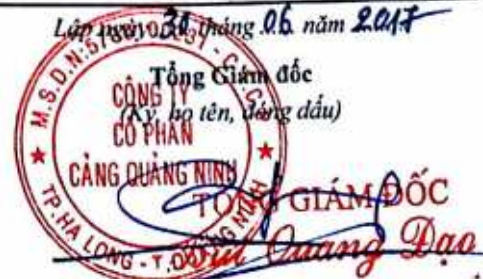 Lập ngày 30 tháng 06 năm 2017
Tổng Giám đốc
(Ký, họ tên, đóng dấu)
M.S.D.N:
CÔNG TY
CỔ PHẦN
CẢNG QUẢNG NINH
TP.HẠ LONG - T.QUẢNG NINH
TỔNG GIÁM ĐỐC
Bùi Quang Đạo